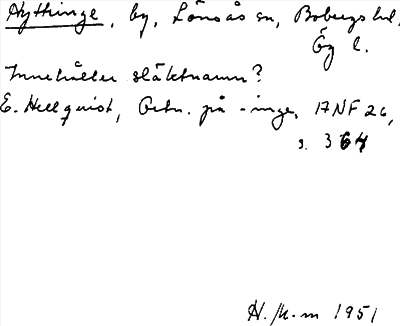 Hyttringe, by, Lönsås sn, Bobergs hd,
Ög l.
Innehåller släktnamn?
E. Hellquist, Ortn. på -inge, ANF 26,
s. 364
H. M-m 1951